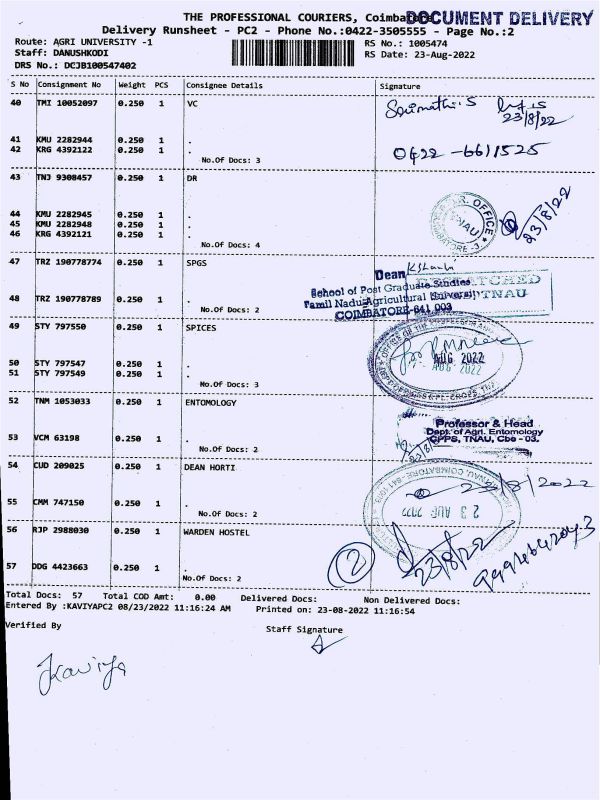 THE PROFESSIONAL COURIERS, Coimbatore
DOCUMENT DELIVERY
Delivery Runsheet - PC2 - Phone No.:0422-3505555 - Page No.:2
Route: AGRI UNIVERSITY -1 RS No.: 1005474
Staff: DANUSHKODI RS Date: 23-Aug-2022
DRS No.: DCJB100547402
S No Consignment No Weight PCS Consignee Details Signature
40 TMI 10052097 0.250 1 VC
23/8/22
41 KMU 2282944 0.250 1 .
42 KRG 4392122 0.250 1 . 0422 - 6611525
No.Of Docs: 3
43 TNJ 9308457 0.250 1 DR
44 KMU 2282945 0.250 1 .
45 KMU 2282948 0.250 1 . 23/8/22
46 KRG 4392121 0.250 1 .
No.Of Docs: 4
47 TRZ 190778774 0.250 1 SPGS
Dean
School of Post Graduate Studies
48 TRZ 190778789 0.250 1 . Tamil Nadu Agricultural University TNAU
No.Of Docs: 2 COIMBATORE-641 003
49 STY 797550 0.250 1 SPICES
AUG 2022
50 STY 797547 0.250 1 .
51 STY 797549 0.250 1 .
No.Of Docs: 3
52 TNM 1053033 0.250 1 ENTOMOLOGY
Professor & Head
Dept. of Agri. Entomology
53 VCM 63198 0.250 1 . CPPS, TNAU, Cbe - 03.
No.Of Docs: 2
54 CUD 209025 0.250 1 DEAN HORTI
23/8/2022
55 CMM 747150 0.250 1 . 23 AUG 2022
No.Of Docs: 2
56 RJP 2988030 0.250 1 WARDEN HOSTEL
2 23/8/22
57 DDG 4423663 0.250 1 .
No.Of Docs: 2
Total Docs: 57 Total COD Amt: 0.00 Delivered Docs: Non Delivered Docs:
Entered By :KAVIYAPC2 08/23/2022 11:16:24 AM Printed on: 23-08-2022 11:16:54
Verified By Staff Signature
Kaviya